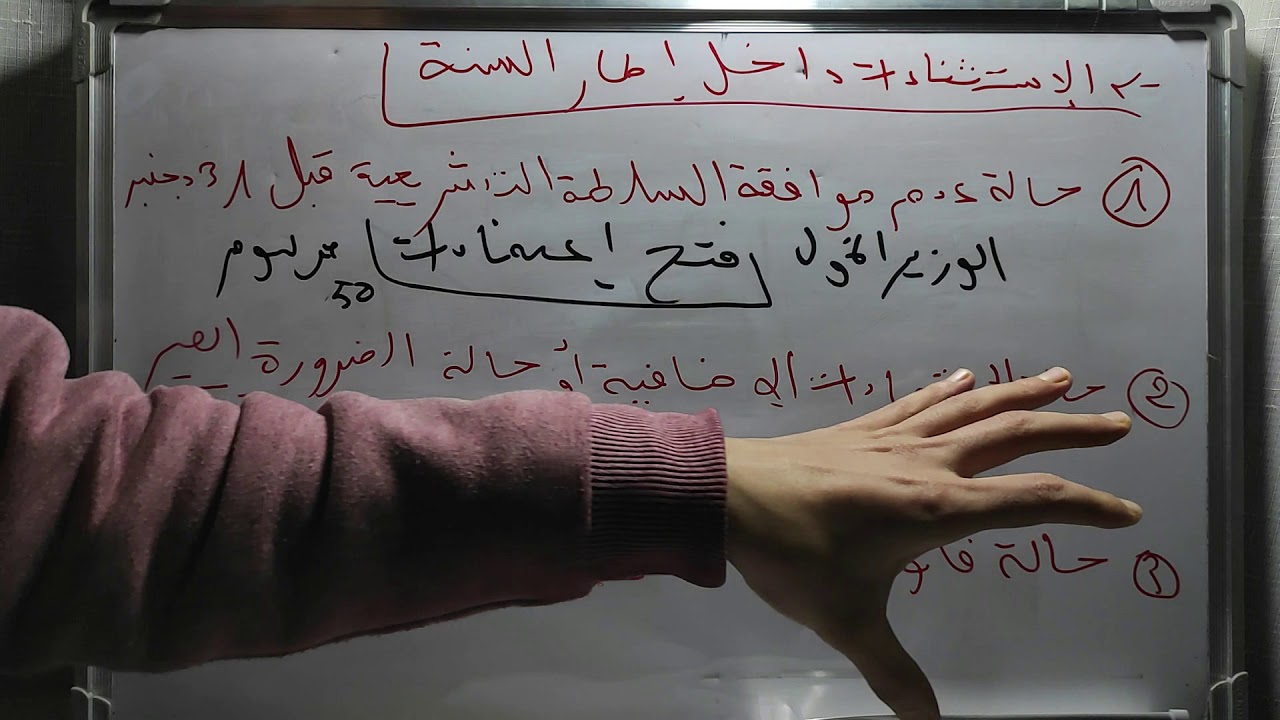 -2 الإستثناءات داخل إطار السنة
① حالة عدم موافقة السلطة التشريعية قبل 31 دجنبر
الوزير الأول فتح إعتمادات مرسوم
50
② الإضافية أو حالة الضرورة
③ حالة